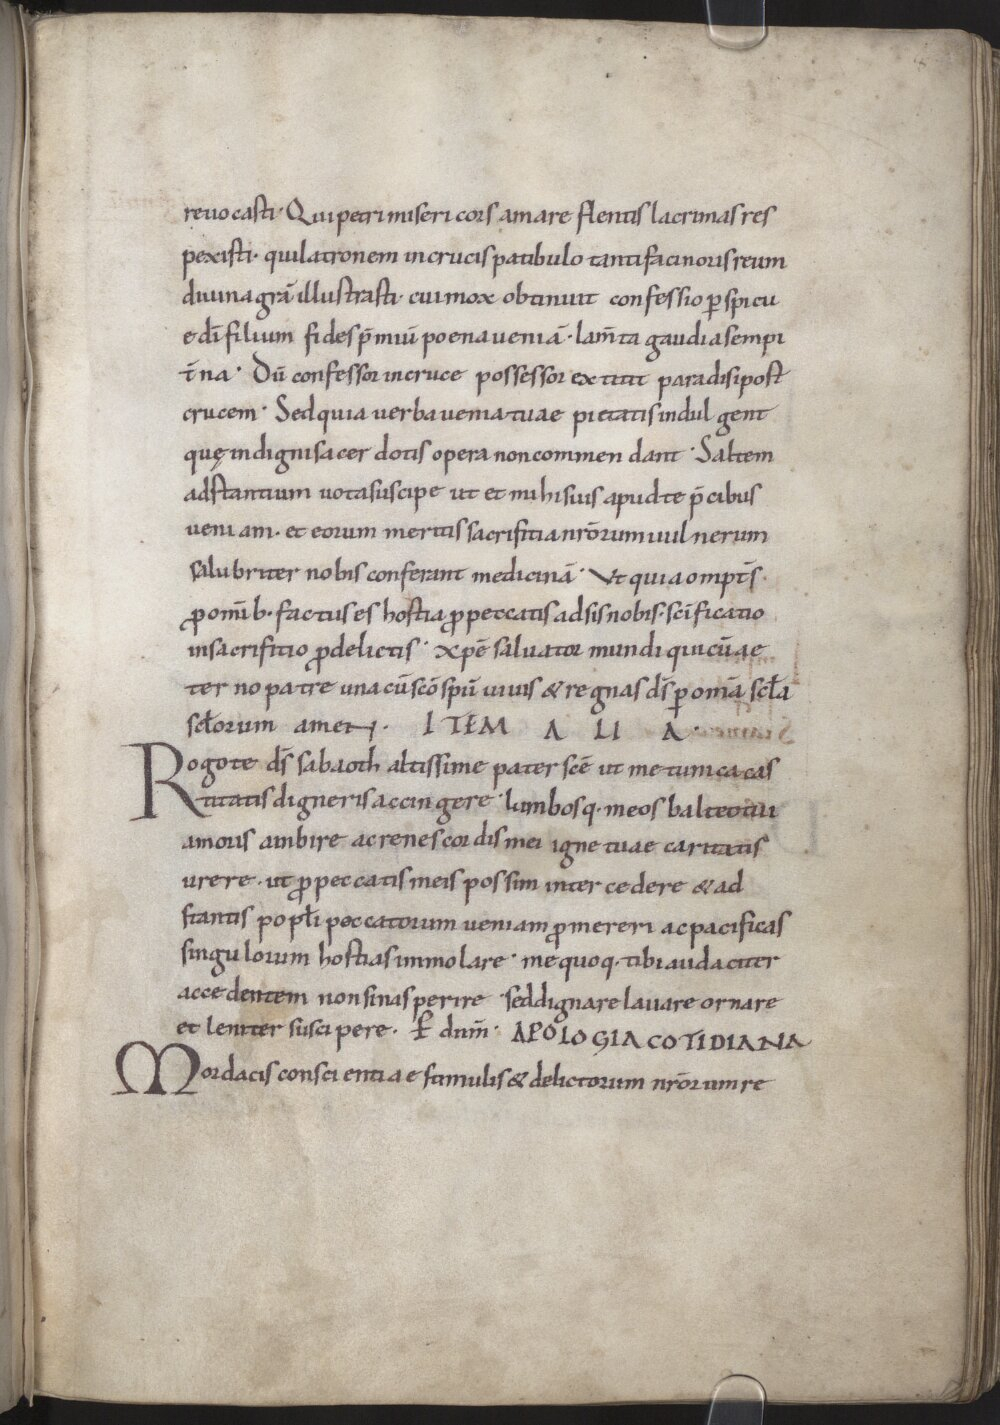 reuocasti· Qui petri miseri cors amare flentis lacrimas res
pexisti· qui latronem in crucis patibulo tanti facinoris reum
diuina grā illustrasti· cui mox obtinuit confessio ꝑspicu
e dī filium fides p̄miū poena ueniā· lam̄ta gaudia sempi
t̄na· Dū confessor in cruce possessor extitit paradisi post
crucem· Sed quia uerba uenia tuae pietatis indulgent
quę indigni sacerdotis opera non commendant· Saltem
adstantium uota suscipe ut et mihi suis apud te p̄cibus
ueniam· et eorum meritis sacrifitia nr̄orum uulnerum
salubriter nobis conferant medicinā· Vt qui a ompt̄s·
ꝓ omīb· factus es hostia ꝓ peccatis adsis nobis· sc̄ificatio
in sacrifitio ꝓ delictis· xp̄e saluator mundi qui cū ae
terno patre una cū sc̄o spū uiuis & regnas dī ꝑ omīa scła
scłorum amen· ITEM ALIA·
Rogo te dī sabaoth altissime pater sc̄e ut me tunica cas
titatis digneris accingere· lumbosq· meos balteo tui
amoris ambire ac renes cordis mei igne tuae caritatis
urere· ut ꝓ peccatis meis possim intercedere & ad
stantis popłi peccatorum ueniam ꝓmereri ac pacificas
singulorum hostias immolare· me quoq· tibi audaciter
accedentem non sinas perire sed dignare lauare ornare
et leniter suscipere· P̄ dnm̄· APOLOGIA COTIDIANA
Mordacis conscientiae stimulis & delictorum nr̄orum re